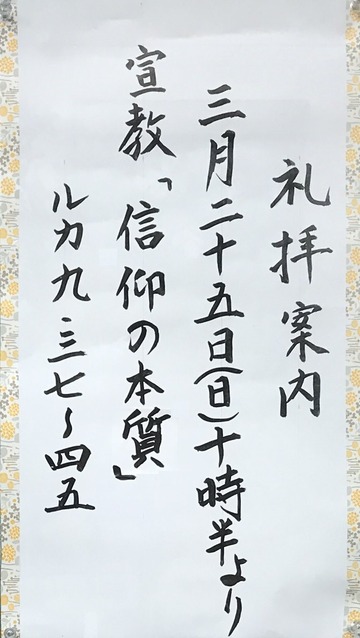 礼拝案内
三月二十五日(日)十時半より
宣教「信仰の本質」
ルカ九・三七~四五